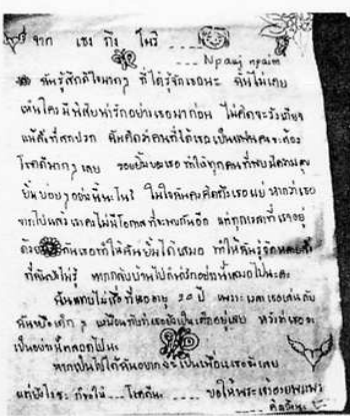 จาก เชง กิง โมรี
Npauj npaim
ฉันรู้สึกดีใจมากๆ ที่ได้รู้จักเธอนะ ฉันไม่เคย
เห็นใครมีนิสัยน่ารักอย่างเธอมาก่อน ไม่คิดจะรังเกียจ
แม้สิ่งที่สกปรก ฉันคิดว่าคนที่ได้เธอเป็นแฟนคงจะต้อง
โชคดีมากๆ เลย รอยยิ้มของเธอ ทำให้ทุกคนที่พบมีความสุข
ยิ้มบ่อยๆ อย่างนี้นะ ในใจฉันคงคิดถึงเธอแย่ หากว่าเธอ
จากไปแล้ว เราคงไม่มีโอกาสที่จะพบกันอีก แต่ทุกเวลาที่เราอยู่
ด้วยกันเธอทำให้ฉันยิ้มได้เสมอ ทำให้ฉันรู้จักหลายสิ่ง
ที่ฉันยังไม่รู้ หากกลับบ้านไปก็น่ารักอย่างนี้เสมอไปนะคะ
ฉันแทบไม่เชื่อที่เธออายุ ปี เพราะเวลาเธอเล่นกับ
ฉันหรือเด็กๆ เหมือนกับที่เธอยังเป็นเด็กอยู่เลย หวังว่าเธอจะ
เป็นอย่างนี้ตลอดไปนะ
หากเป็นไปได้ฉันอยากจะเป็นเพื่อนเธอจังเลย
แต่ยังไงซะ ก็ขอให้ โชคดีนะ ขอให้พระเจ้าอวยพระพร
คิดถึงนะ